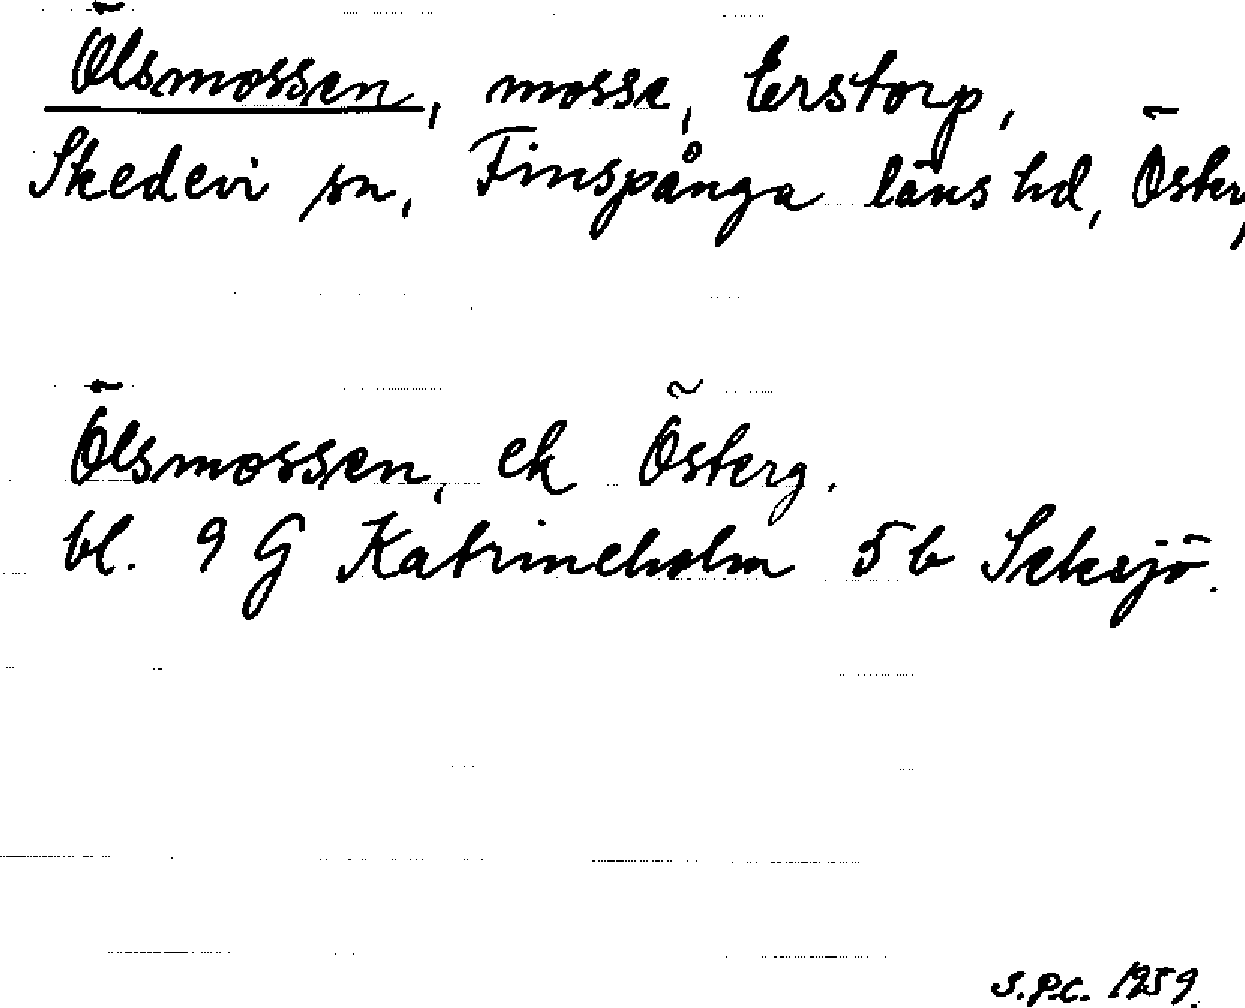 Ölsmossen, mosse, Erstorp,
Skedevi sn, Finspånga läns hd, Österg,
Ölsmossen, ek Österg.
bl. 9 G Katrineholm 5 b
S.P.C. 1959.